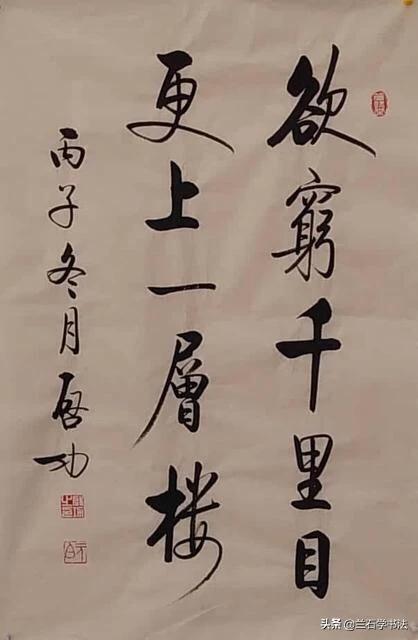 欲窮千里目
更上一層楼
丙子冬月啓功
头条 @兰石学书法